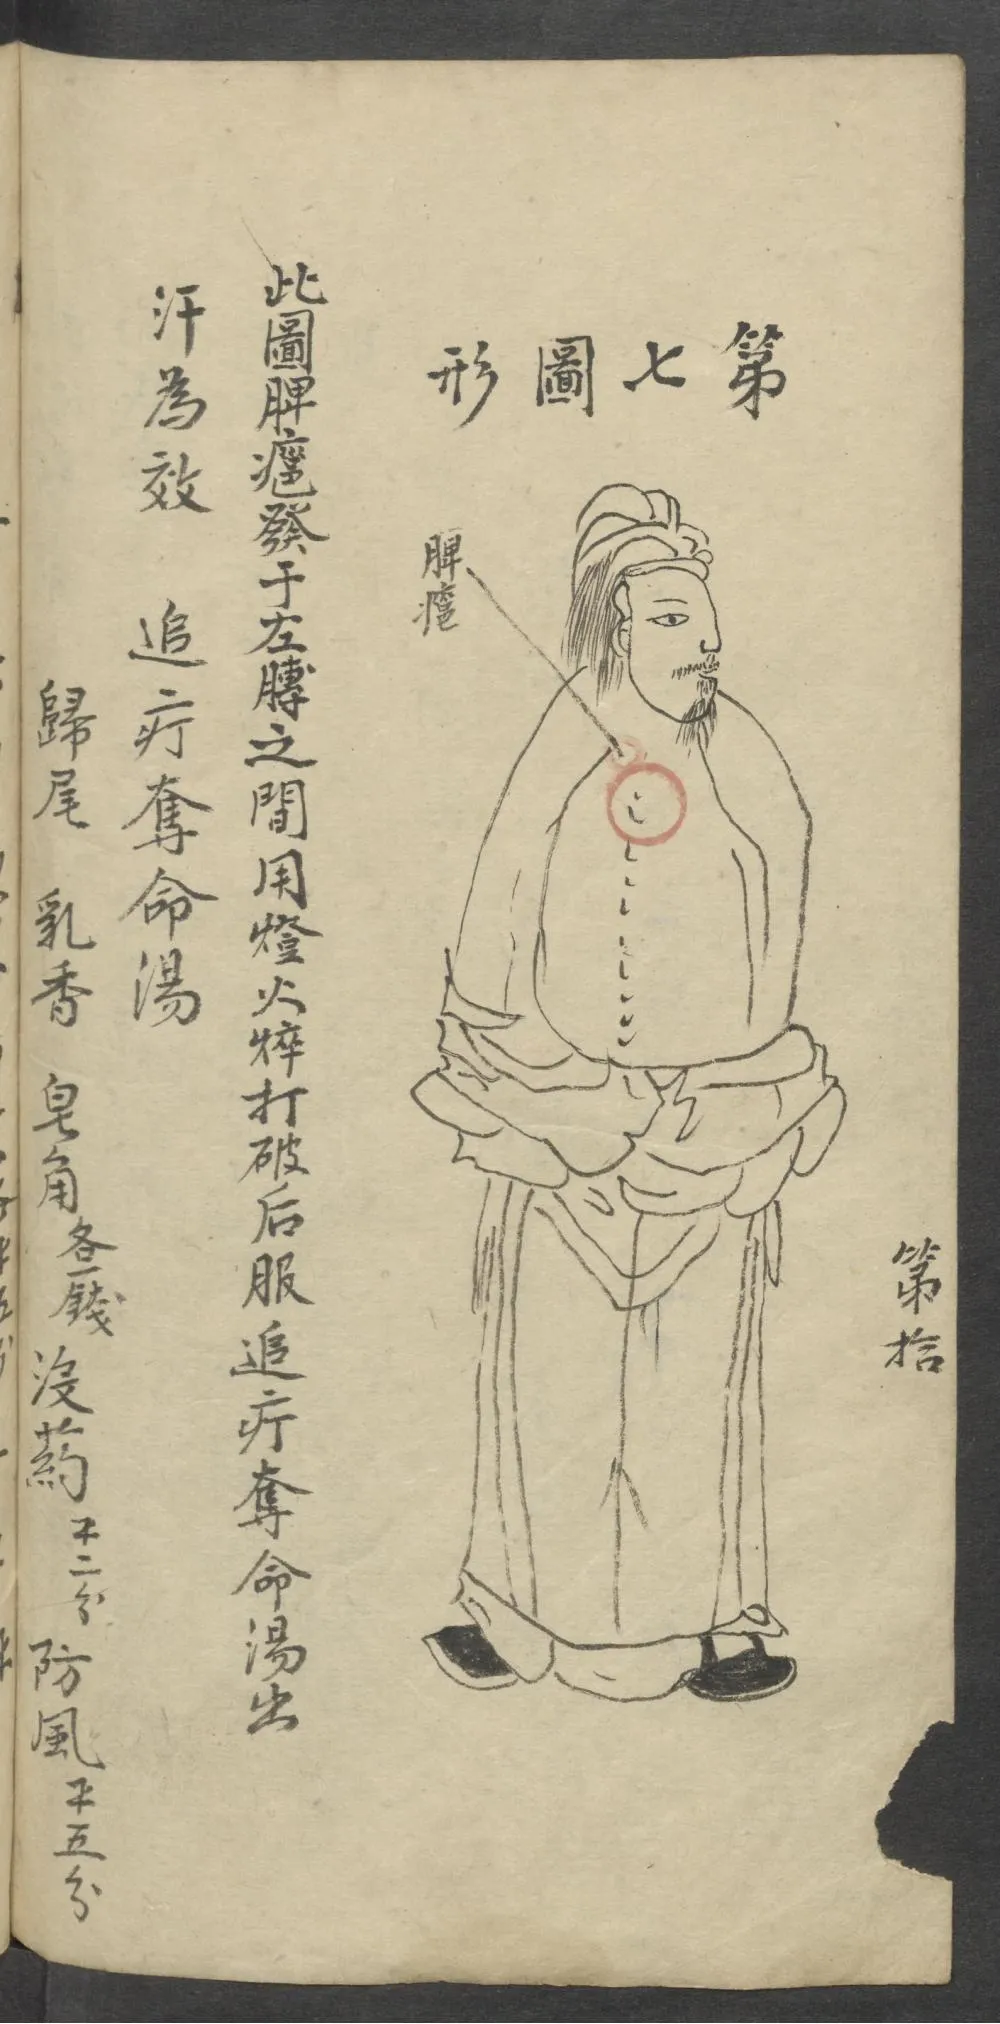 第七圖形
脾瘟
第拾
此圖脾瘟發于左膊之間用燈火焠打破后服追疔奪命湯出
汗為效　追疔奪命湯
歸尾　乳香　皂角各一錢　沒药　二分　防風　五分